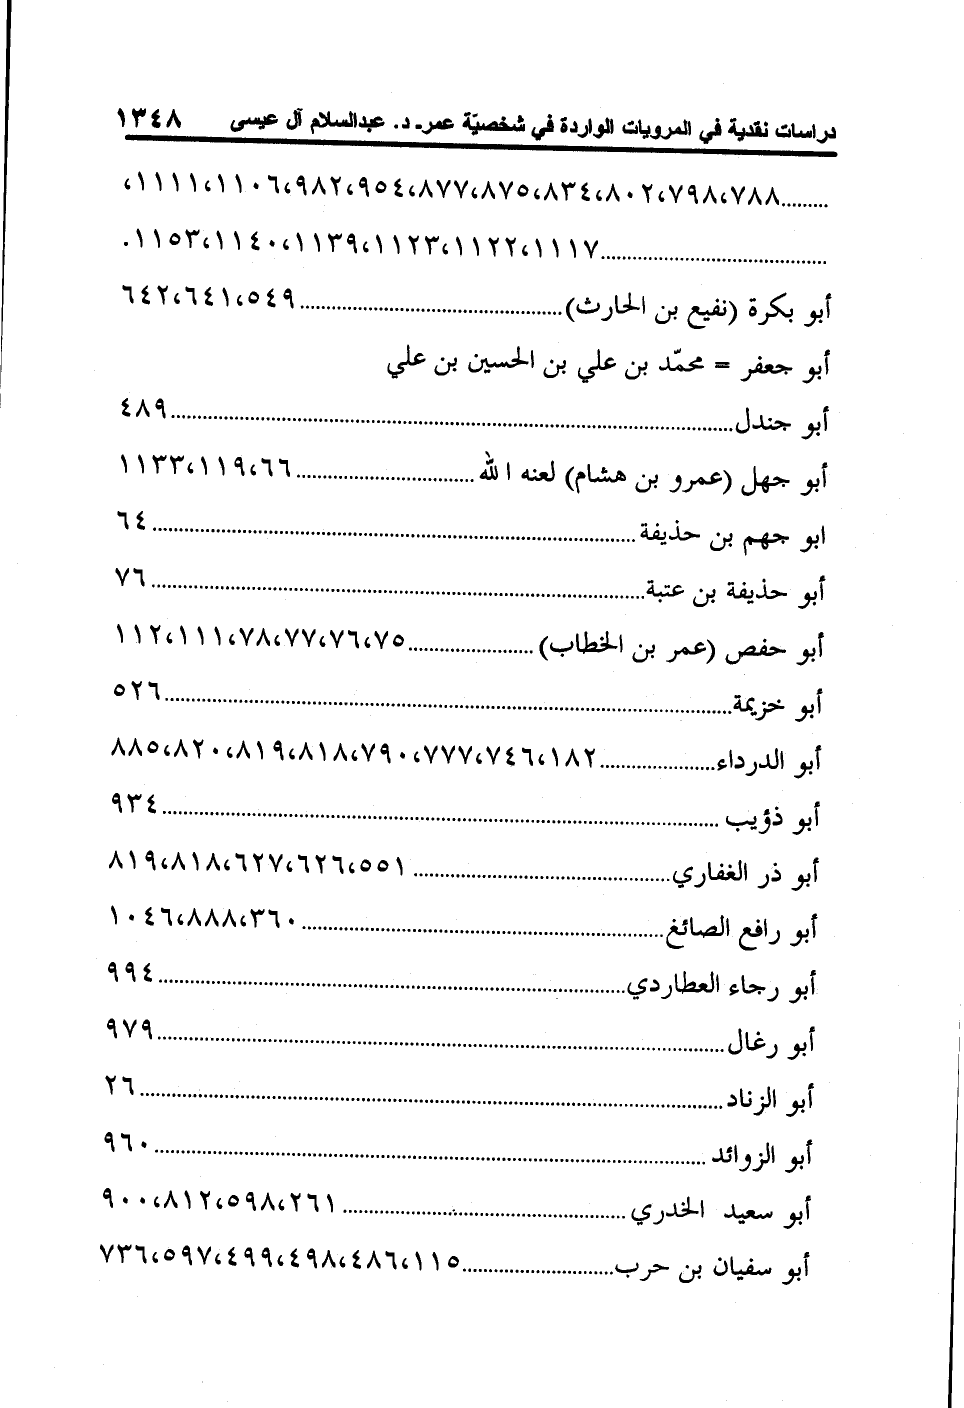 دراسات نقدية في المرويات الواردة في شخصيّة عمر- د. عبدالسلام آل عيسى ١٣٤٨
.........٧٨٨،٧٩٨،٨٠٢،٨٣٤،٨٧٥،٨٧٧،٩٥٤،٩٨٢،١١٠٦،١١١١،
..........١١١٧،١١٢٢،١١٢٣،١١٣٩،١١٤٠،١١٥٣.
أبو بكرة (نفيع بن الحارث)..........٥٤٩،٦٤١،٦٤٢
أبو جعفر = محمّد بن علي بن الحسين بن علي
أبو جندل..........٤٨٩
أبو جهل (عمرو بن هشام) لعنه الله..........٦٦،١١٩،١١٣٣
ابو جهم بن حذيفة..........٦٤
أبو حذيفة بن عتبة..........٧٦
أبو حفص (عمر بن الخطاب)..........٧٥،٧٦،٧٧،٧٨،١١١،١١٢
أبو خزيمة..........٥٢٦
أبو الدرداء..........١٨٢،٧٤٦،٧٧٧،٧٩٠،٨١٨،٨١٩،٨٢٠،٨٨٥
أبو ذؤيب..........٩٣٤
أبو ذر الغفاري..........٥٥١،٦٢٦،٦٢٧،٨١٨،٨١٩
أبو رافع الصائغ..........٣٦٠،٨٨٨،١٠٤٦
أبو رجاء العطاردي..........٩٩٤
أبو رغال..........٩٧٩
أبو الزناد..........٢٦
أبو الزوائد..........٩٦٠
أبو سعيد الخدري..........٢٦١،٥٩٨،٨١٢،٩٠٠
أبو سفيان بن حرب..........١١٥،٤٨٦،٤٩٨،٤٩٩،٥٩٧،٧٣٦